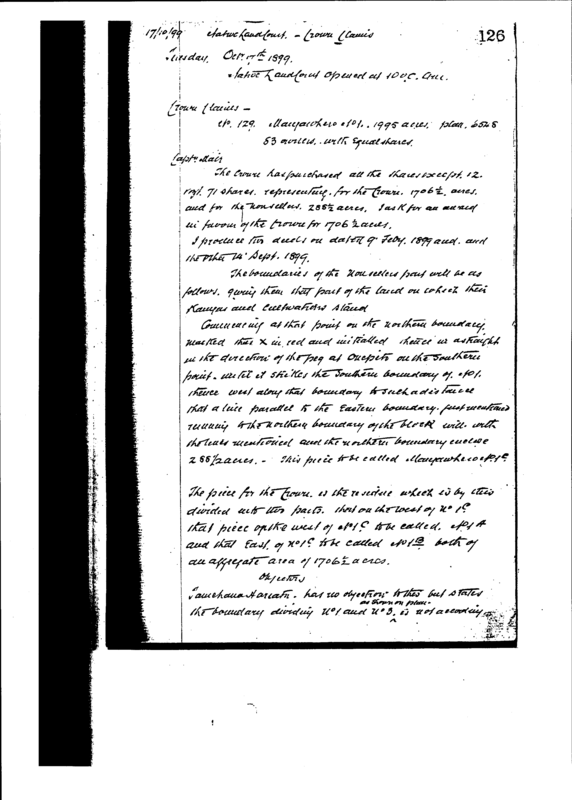 17/10/99 Native Land Court. - Crown Claims 126
Tuesday, Oct. 17th 1899.
Native Land Court opened at 10 o.c. a.m.
Crown Claims -
No. 129. Mangawhero No 1. 1995 acres. plan. 6528
83 owners. with equal shares.
Captn Mair
The Crown has purchased all the shares except. 12.
71 shares. representing. for the Crown. 1706½ acres.
and for the nonsellers. 288½ acres. I ask for an award
in favour of the Crown for 1706½ acres.
I produce two deeds one dated 9th Feby. 1899 and. and
the other 14th Sept. 1899.
The boundaries of the nonsellers part will be as
follows. giving them that part of the land on which their
Kaingas and Cultivations stand
Commencing at that point on the northern boundary
marked thus X in red and initialled thence in a straight
in the direction of the peg at Onepito on the Southern
point. until it strikes the Southern boundary of. No 1.
thence west along that boundary to such a distance
that a line parallel to the Eastern boundary. just mentioned
running to the northern boundary of the block will. with
the lines mentioned and the northern boundary enclose
288½ acres. - This piece to be called Mangawhero No 1C
The piece for the Crown. is the residue which is by this
divided into two parts. that on the west of No 1C
that piece on the west of No 1C to be called. No 1A
and that East. of No 1C to be called No 1B both of
an aggregate area of 1706½ acres.
Objectors
Tamehana has no objection to this but states
the boundary dividing No 1 and No 3, as shown on plan is not according